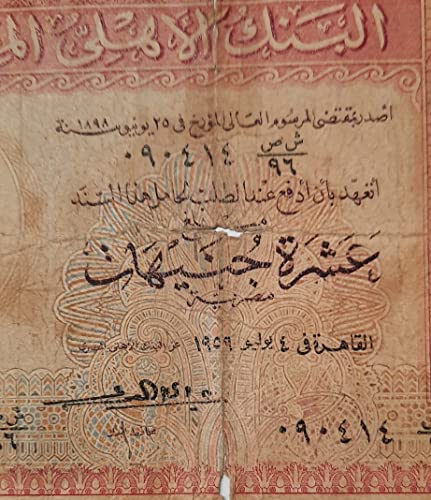 البنك الأهلى الم
أصدر بمقتضى المرسوم العالى المؤرخ فى ٢٥ يونيو سنة ١٨٩٨
ش ص
٩٦
٠٩٠٤١٤
أتعهد بأن أدفع عند الطلب لحامل هذا السند
مبلغ
عشرة جنيهات
مصرية
القاهرة فى ٤ يوليو ١٩٥٦
عن البنك الأهلى المصرى
٠٩٠٤١٤